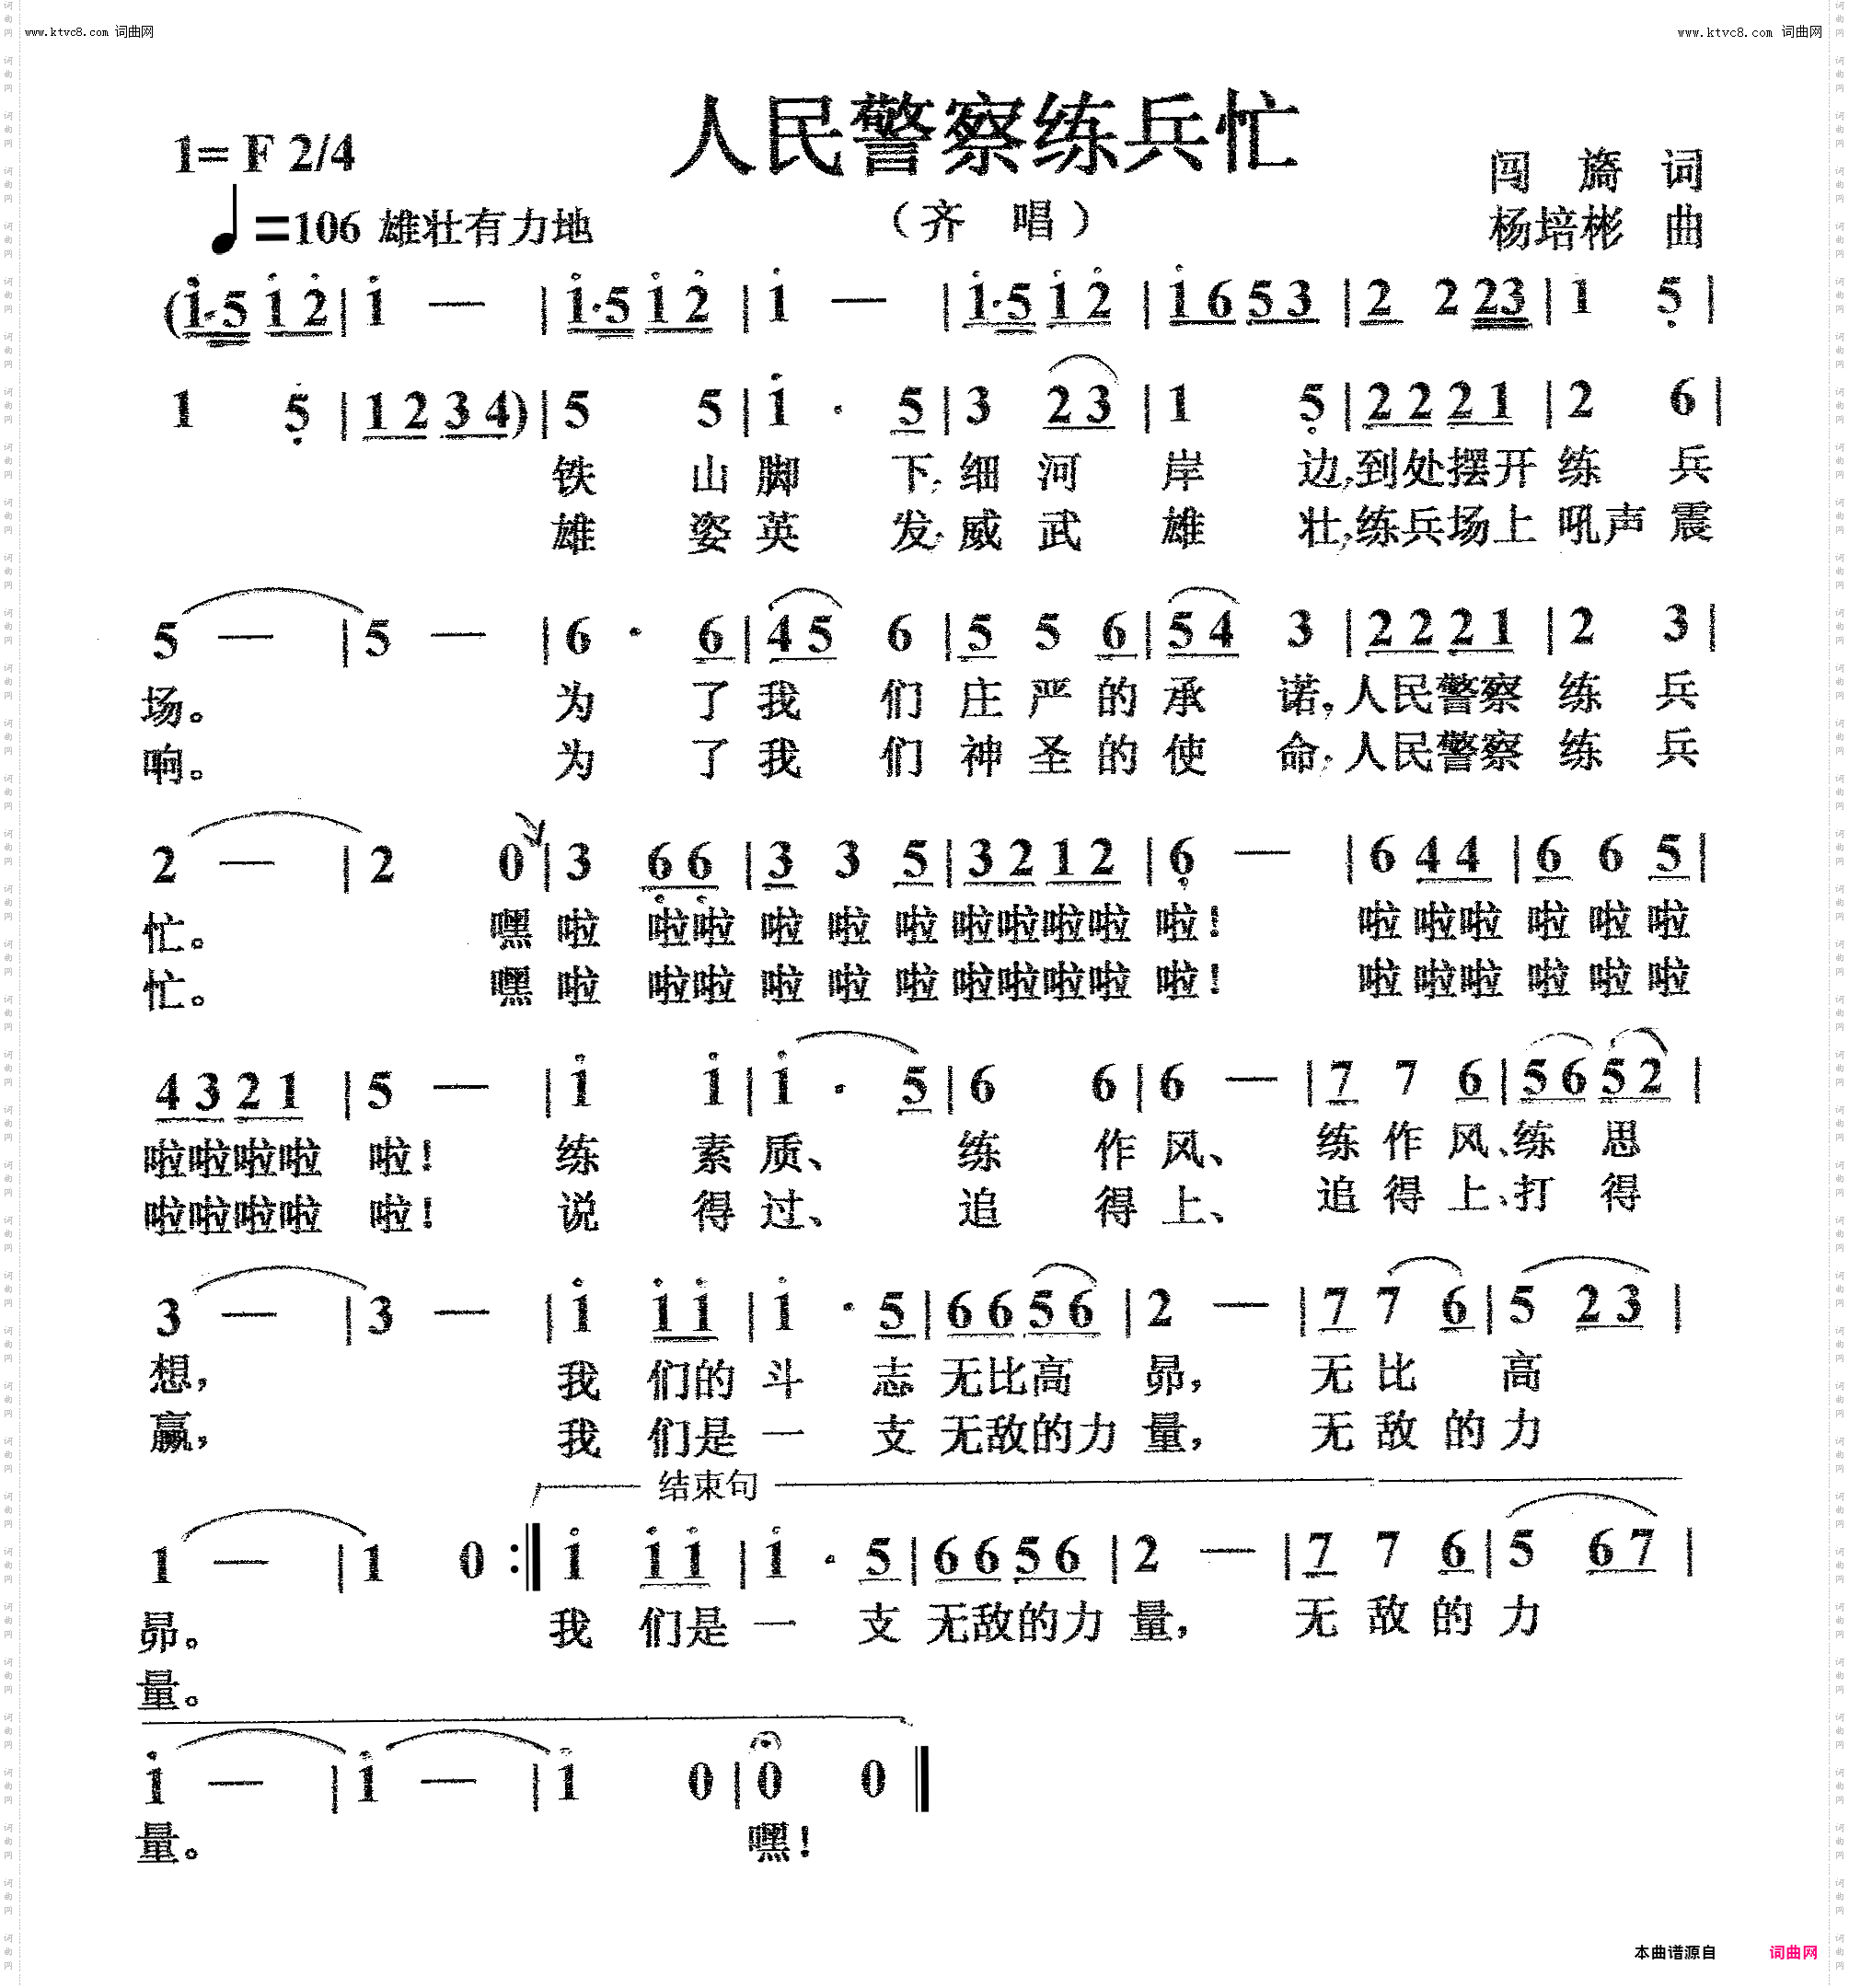 www.ktvc8.com 词曲网
www.ktvc8.com 词曲网
人民警察练兵忙
1= F 2/4
闯 旖 词
=106 雄壮有力地
(齐 唱)
杨培彬 曲
(1·5 1 2 | 1 — | 1·5 1 2 | 1 — | 1·5 1 2 | 1 6 5 3 | 2 2 23 | 1 5 |
1 5 | 1 2 3 4) | 5 5 | 1 · 5 | 3 2 3 | 1 5 | 2 2 2 1 | 2 6 |
铁 山 脚 下,细 河 岸 边,到处摆开 练 兵
雄 姿 英 发,威 武 雄 壮,练兵场上 吼声 震
5 — | 5 — | 6 · 6 | 4 5 6 | 5 5 6 | 5 4 3 | 2 2 2 1 | 2 3 |
场。 为 了 我 们 庄 严 的 承 诺,人民警察 练 兵
响。 为 了 我 们 神 圣 的 使 命,人民警察 练 兵
2 — | 2 0 | 3 6 6 | 3 3 5 | 3 2 1 2 | 6 — | 6 4 4 | 6 6 5 |
忙。 嘿 啦 啦啦 啦 啦 啦 啦啦啦啦 啦! 啦 啦啦 啦 啦 啦
忙。 嘿 啦 啦啦 啦 啦 啦 啦啦啦啦 啦! 啦 啦啦 啦 啦 啦
4 3 2 1 | 5 — | 1 1 | 1 · 5 | 6 6 | 6 — | 7 7 6 | 5 6 5 2 |
啦啦啦啦 啦! 练 素 质、 练 作 风、 练 作 风、练 思
啦啦啦啦 啦! 说 得 过、 追 得 上、 追 得 上、打 得
3 — | 3 — | 1 1 1 | 1 · 5 | 6 6 5 6 | 2 — | 7 7 6 | 5 2 3 |
想, 我 们的 斗 志 无比高 昴, 无 比 高
赢, 我 们是 一 支 无敌的力 量, 无 敌 的 力
结束句
1 — | 1 0 :‖ 1 1 1 | 1 · 5 | 6 6 5 6 | 2 — | 7 7 6 | 5 6 7 |
昴。 我 们是 一 支 无敌的力 量, 无 敌 的 力
量。
1 — | 1 — | 1 0 | 0 0 ‖
量。 嘿!
本曲谱源自 词曲网